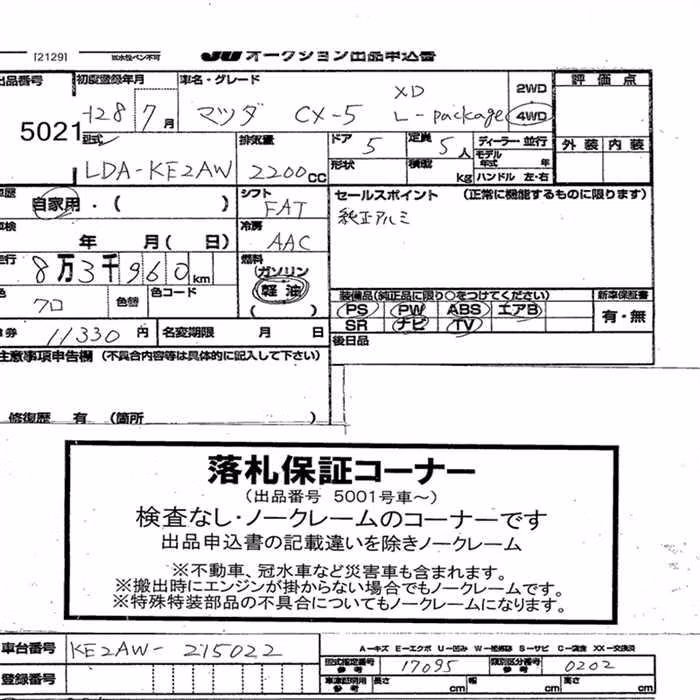 [2129] ※水性ペン不可 JU オークション出品申込書
出品番号 初度登録年月 車名・グレード 2WD 評価点
5021 H28 7月 マツダ CX-5 XD L-package 4WD
型式 排気量 ドア 5 定員 5人 ディーラー・並行 外装 内装
LDA-KE2AW 2200CC 形状 積載 kg モデル年式 年 ハンドル 左・右
車歴 自家用・( ) シフト FAT セールスポイント (正常に機能するものに限ります)
車検 年 月( 日) 冷房 AAC 純正アルミ
走行 8万3千960km 燃料 ガソリン 軽油 ( )
色 クロ 色替 色コード 装備品(純正品に限り○をつけてください) 新車保証書
PS PW ABS エアB 有・無
券 11330円 名変期限 月 日 SR ナビ TV
注意事項申告欄 (不具合内容等は具体的に記入して下さい) 後日品
修復歴 有 (箇所 )
落札保証コーナー
(出品番号 5001号車~)
検査なし・ノークレームのコーナーです
出品申込書の記載違いを除きノークレーム
※不動車、冠水車など災害車も含まれます。
※搬出時にエンジンが掛からない場合でもノークレームです。
※特殊特装部品の不具合についてもノークレームになります。
車台番号 KE2AW-215022 A-キズ E-エクボ U-凹み W-補修跡 S-サビ C-腐食 XX-交換済
型式指定番号 参考 17095 類別区分番号 参考 0202
登録番号 車庫証明用 参考 長さ cm 幅 cm 高さ cm